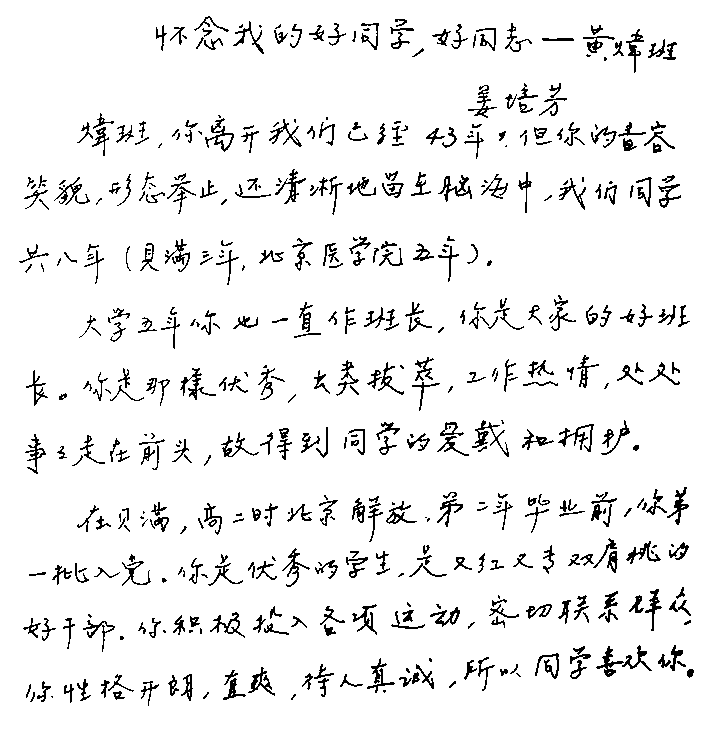 怀念我的好同学,好同志一黄煒班
姜培芳
煒班,你离开我们已经43年。但你的音容
笑貌,形态举止,还清淅地留在脑海中,我们同学
共八年(贝满三年,北京医学院五年)。
大学五年你也一直作班长,你是大家的好班
长。你是那樣优秀,出类拔萃,工作热情,处处
事々走在前头,故得到同学的爱戴和拥护。
在贝满,高二时北京解放,第二年毕业前,你第
一批入党。你是优秀的学生,是又红又专双肩挑的
好干部。你积极投入各项运动,密切联系群众,
你性格开朗,直爽,待人真诚,所以同学喜欢你。